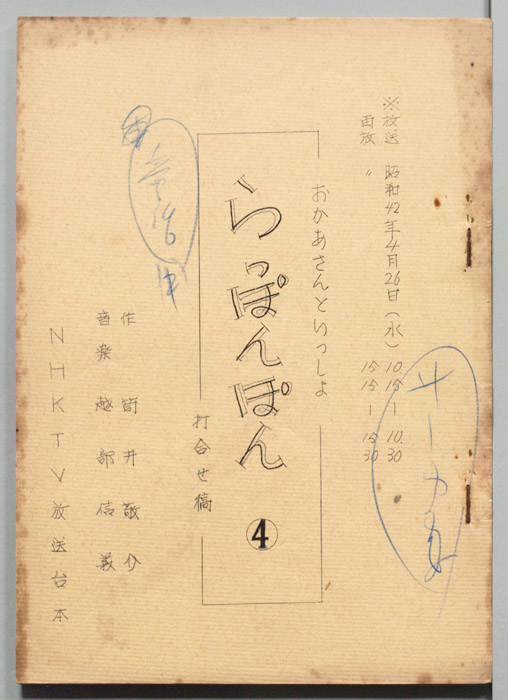 ※放送 昭和42年4月26日(水) 10.15-10.30
再放 〃 15.15-15.30
おかあさんといっしょ
らっぽんぽん ④
打合せ稿
作 筒井敬介
音楽 越部信義
NHKTV放送台本